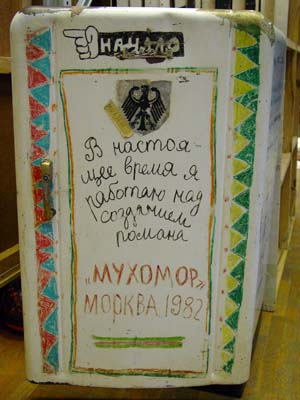 НАЧАЛО
В настоя-
щее время я
работаю над
созданием
романа
„МУХОМОР"
МОРКВА 1982